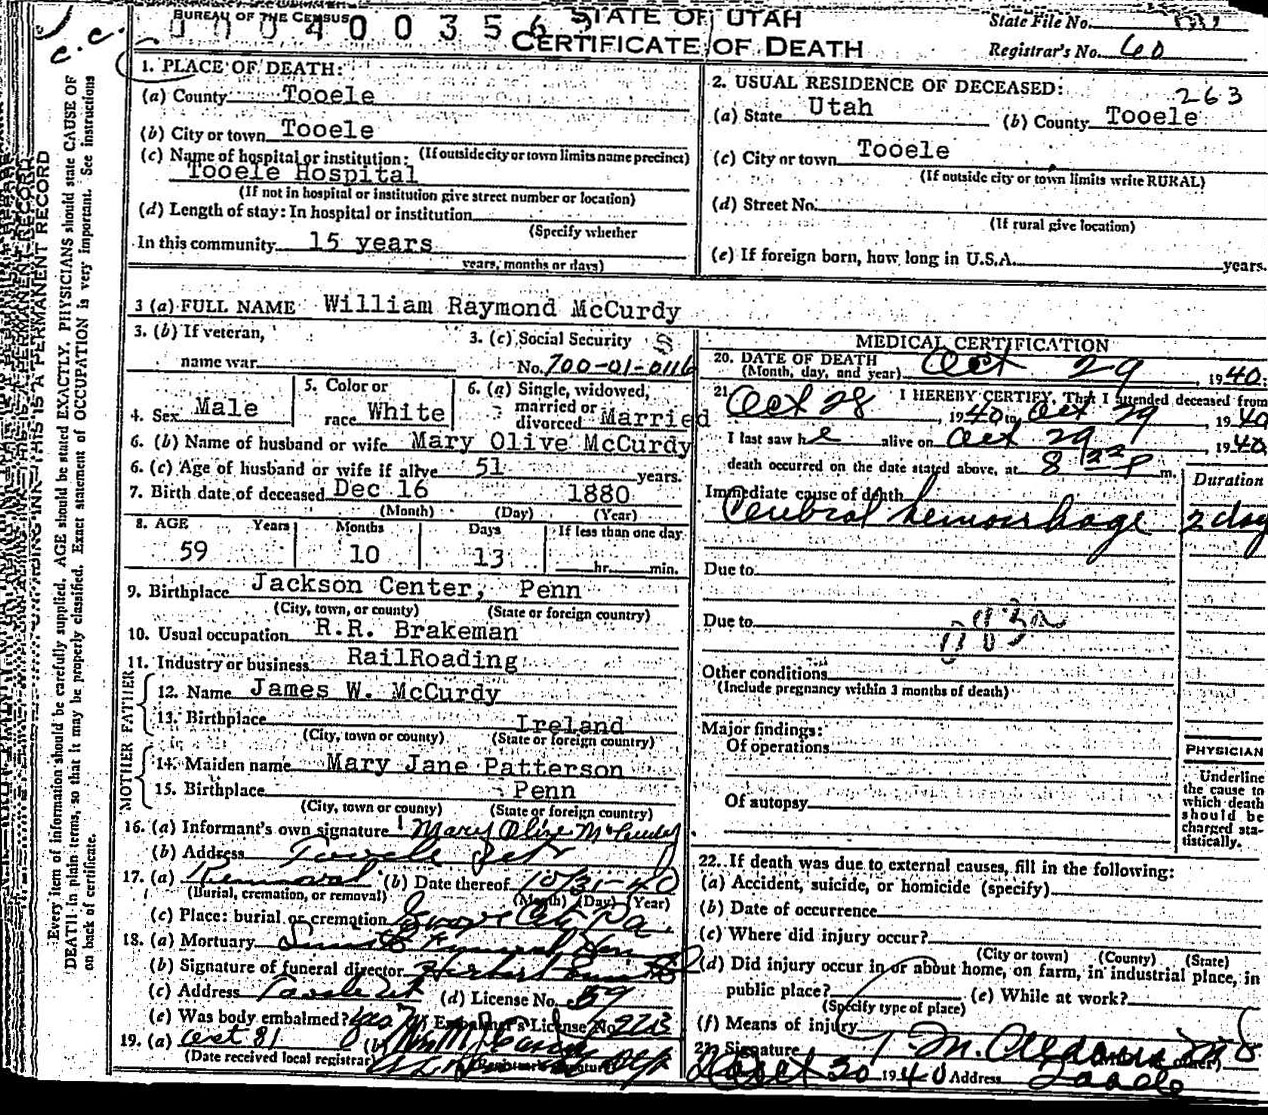 BUREAU OF THE CENSUS
STATE OF UTAH
CERTIFICATE OF DEATH
State File No.
Registrar's No. 60
c.c.
Every item of information should be carefully supplied. AGE should be stated EXACTLY. PHYSICIANS should state CAUSE OF
DEATH in plain terms, so that it may be properly classified. Exact statement of OCCUPATION is very important. See instructions
on back of certificate.
1. PLACE OF DEATH:
(a) County Tooele
(b) City or town Tooele
(If outside city or town limits name precinct)
(c) Name of hospital or institution:
Tooele Hospital
(If not in hospital or institution give street number or location)
(d) Length of stay: In hospital or institution
(Specify whether
In this community 15 years
years, months or days)
2. USUAL RESIDENCE OF DECEASED:
263
(a) State Utah (b) County Tooele
(c) City or town Tooele
(If outside city or town limits write RURAL)
(d) Street No.
(If rural give location)
(e) If foreign born, how long in U.S.A. years.
3 (a) FULL NAME William Raymond McCurdy
3. (b) If veteran,
name war
3. (c) Social Security
No. 700-01-0116
4. Sex Male
5. Color or
race White
6. (a) Single, widowed,
married or
divorced Married
6. (b) Name of husband or wife Mary Olive McCurdy
6. (c) Age of husband or wife if alive 51 years.
7. Birth date of deceased Dec 16 1880
(Month) (Day) (Year)
8. AGE Years Months Days If less than one day
59 10 13 hr. min.
9. Birthplace Jackson Center, Penn
(City, town, or county) (State or foreign country)
10. Usual occupation R.R. Brakeman
11. Industry or business RailRoading
FATHER
12. Name James W. McCurdy
13. Birthplace Ireland
(City, town or county) (State or foreign country)
MOTHER
14. Maiden name Mary Jane Patterson
15. Birthplace Penn
(City, town or county) (State or foreign country)
16. (a) Informant's own signature Mary Olive McCurdy
(b) Address Tooele Utah
17. (a) Removal (b) Date thereof 10/31-40
(Burial, cremation, or removal) (Month) (Day) (Year)
(c) Place: burial or cremation Grove City Pa.
18. (a) Mortuary Funeral
(b) Signature of funeral director Herbert
(c) Address Tooele Ut (d) License No. 59
(e) Was body embalmed? Yes Embalmer's License No.
19. (a) Oct 31 (b)
(Date received local registrar)
MEDICAL CERTIFICATION
20. DATE OF DEATH
(Month, day, and year) Oct 29, 1940.
21. I HEREBY CERTIFY, That I attended deceased from
Oct 28, 1940 to Oct 29, 1940
I last saw he alive on Oct 29, 1940.
death occurred on the date stated above, at 8 22 P m.
Duration
Immediate cause of death
Cerebral hemorrhage 2 day
Due to
Due to
Other conditions
(Include pregnancy within 3 months of death)
Major findings:
Of operations
Of autopsy
PHYSICIAN
Underline
the cause to
which death
should be
charged sta-
tistically.
22. If death was due to external causes, fill in the following:
(a) Accident, suicide, or homicide (specify)
(b) Date of occurrence
(c) Where did injury occur?
(City or town) (County) (State)
(d) Did injury occur in or about home, on farm, in industrial place, in
public place? (e) While at work?
(Specify type of place)
(f) Means of injury
23. Signature
Oct 30 1940 Address Tooele